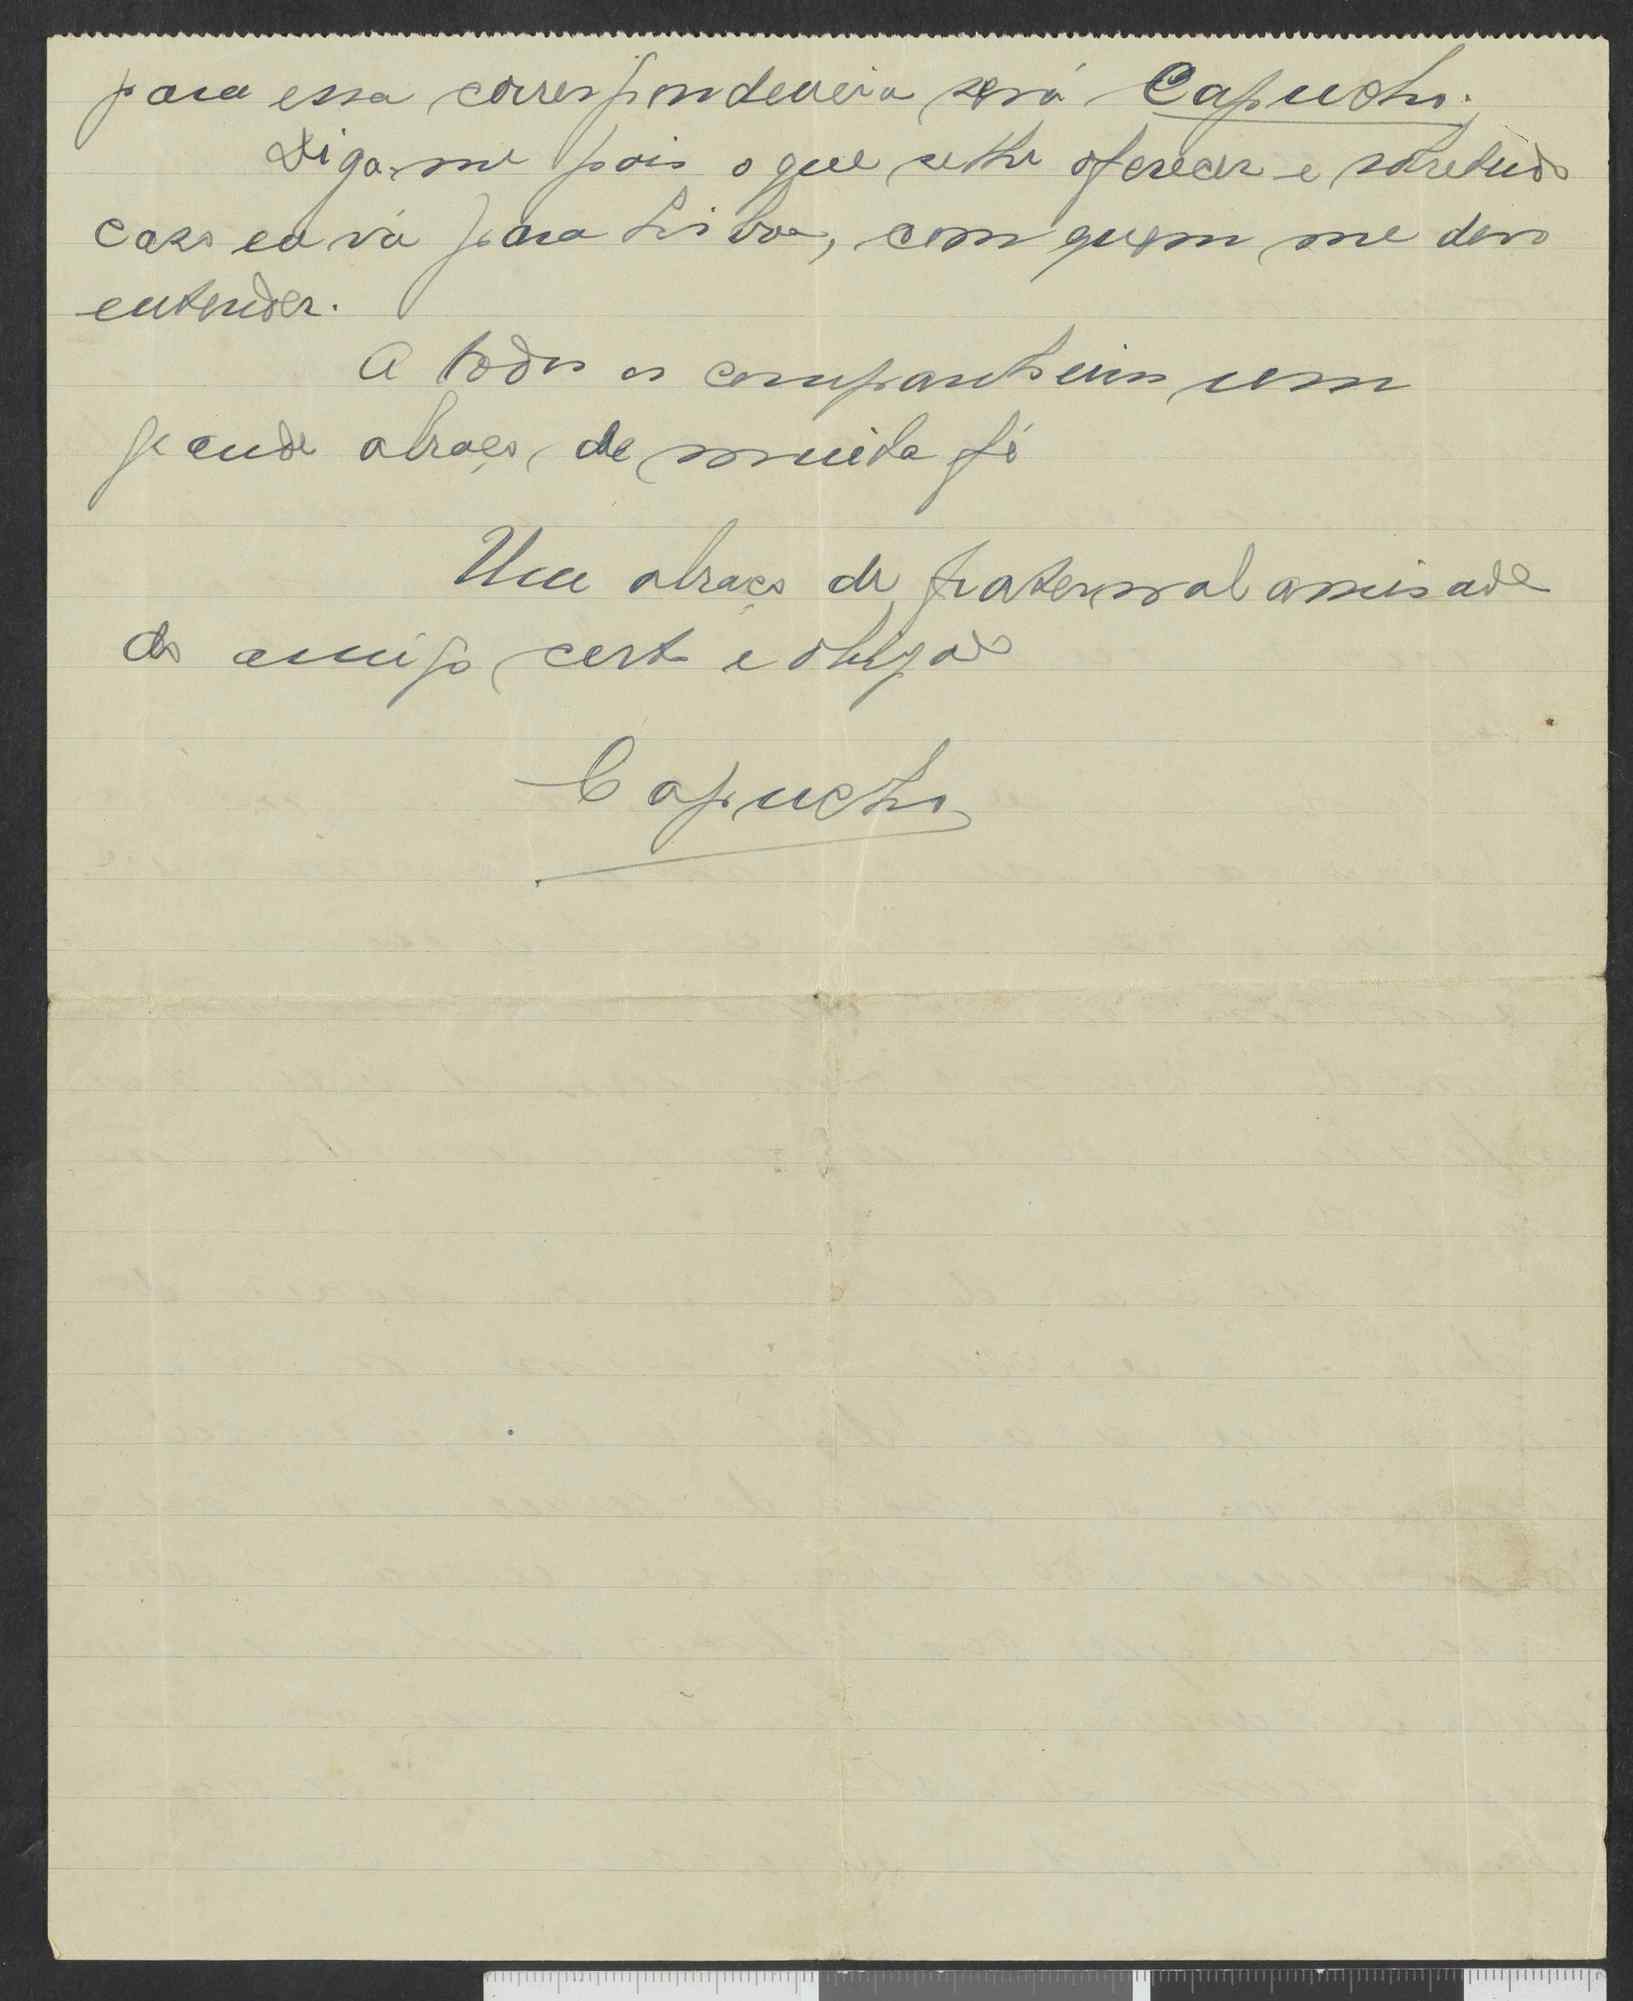 para essa correspondencia será Capucho.
Diga-me pois o que se lhe oferecer e sobretudo
caso eu vá para Lisboa, com quem me devo
entender.
A todos os companheiros um
grande abraço de muita fé
Um abraço de fraternal amisade
do amigo certo e obrigado
Capucho